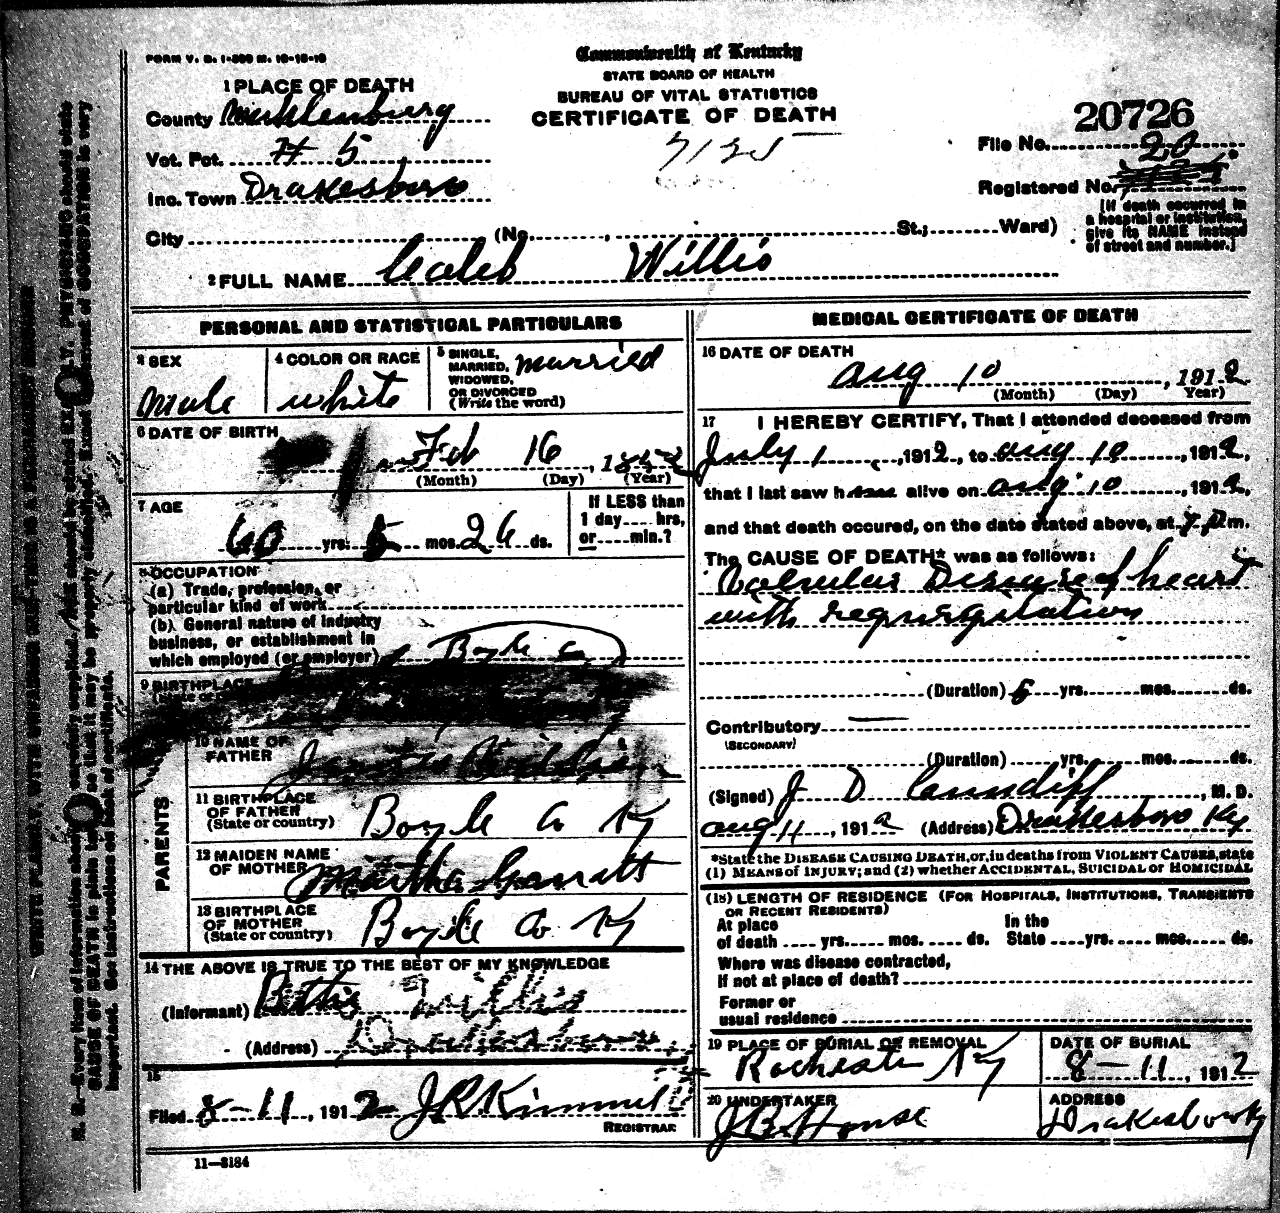 FORM V. S. 1-300 M. 10-10-10
Commonwealth of Kentucky
STATE BOARD OF HEALTH
BUREAU OF VITAL STATISTICS
CERTIFICATE OF DEATH
7125
20726
File No. 20
Registered No.
[If death occurred in a hospital or institution, give its NAME instead of street and number.]
1 PLACE OF DEATH
County Muhlenburg
Vot. Pct. # 5
Inc. Town Drakesboro
City (No. , St.; Ward)
2 FULL NAME Caleb Willis
PERSONAL AND STATISTICAL PARTICULARS
3 SEX Male
4 COLOR OR RACE white
5 SINGLE, MARRIED, WIDOWED, OR DIVORCED (Write the word) married
6 DATE OF BIRTH
Feb 16, 1852
(Month) (Day) (Year)
7 AGE
60 yrs. 5 mos. 26 ds.
If LESS than 1 day hrs, or min.?
8 OCCUPATION
(a) Trade, profession, or
particular kind of work
(b) General nature of industry
business, or establishment in
which employed (or employer)
Boyle Co
9 BIRTHPLACE
10 NAME OF FATHER
11 BIRTHPLACE OF FATHER (State or country) Boyle Co Ky
PARENTS
12 MAIDEN NAME OF MOTHER Martha Garratt
13 BIRTHPLACE OF MOTHER (State or country) Boyle Co Ky
14 THE ABOVE IS TRUE TO THE BEST OF MY KNOWLEDGE
(Informant) Bettie Willis
(Address) Drakesboro
15
Filed 8-11, 1912 J R Kimmell
REGISTRAR
11-3184
MEDICAL CERTIFICATE OF DEATH
16 DATE OF DEATH
aug 10, 1912
(Month) (Day) Year)
17 I HEREBY CERTIFY, That I attended deceased from
July 1, 1912, to aug 10, 1912,
that I last saw h alive on aug 10, 1912,
and that death occured, on the date stated above, at 7 P m.
The CAUSE OF DEATH* was as follows:
Valvular Disease of heart
with regurgitation
(Duration) 5 yrs. mos. ds.
Contributory
(SECONDARY)
(Duration) yrs. mos. ds.
(Signed) J D Cundiff, M. D.
aug 11, 1912 (Address) Drakesboro Ky
*State the DISEASE CAUSING DEATH, or, in deaths from VIOLENT CAUSES, state
(1) MEANS of INJURY; and (2) whether ACCIDENTAL, SUICIDAL or HOMICIDAL
(18) LENGTH OF RESIDENCE (FOR HOSPITALS, INSTITUTIONS, TRANSIENTS
OR RECENT RESIDENTS)
At place of death yrs. mos. ds. In the State yrs. mos. ds.
Where was disease contracted,
if not at place of death?
Former or
usual residence
19 PLACE OF BURIAL OR REMOVAL Rochester Ky
DATE OF BURIAL 8-11, 1912
20 UNDERTAKER J B House
ADDRESS Drakesboro Ky